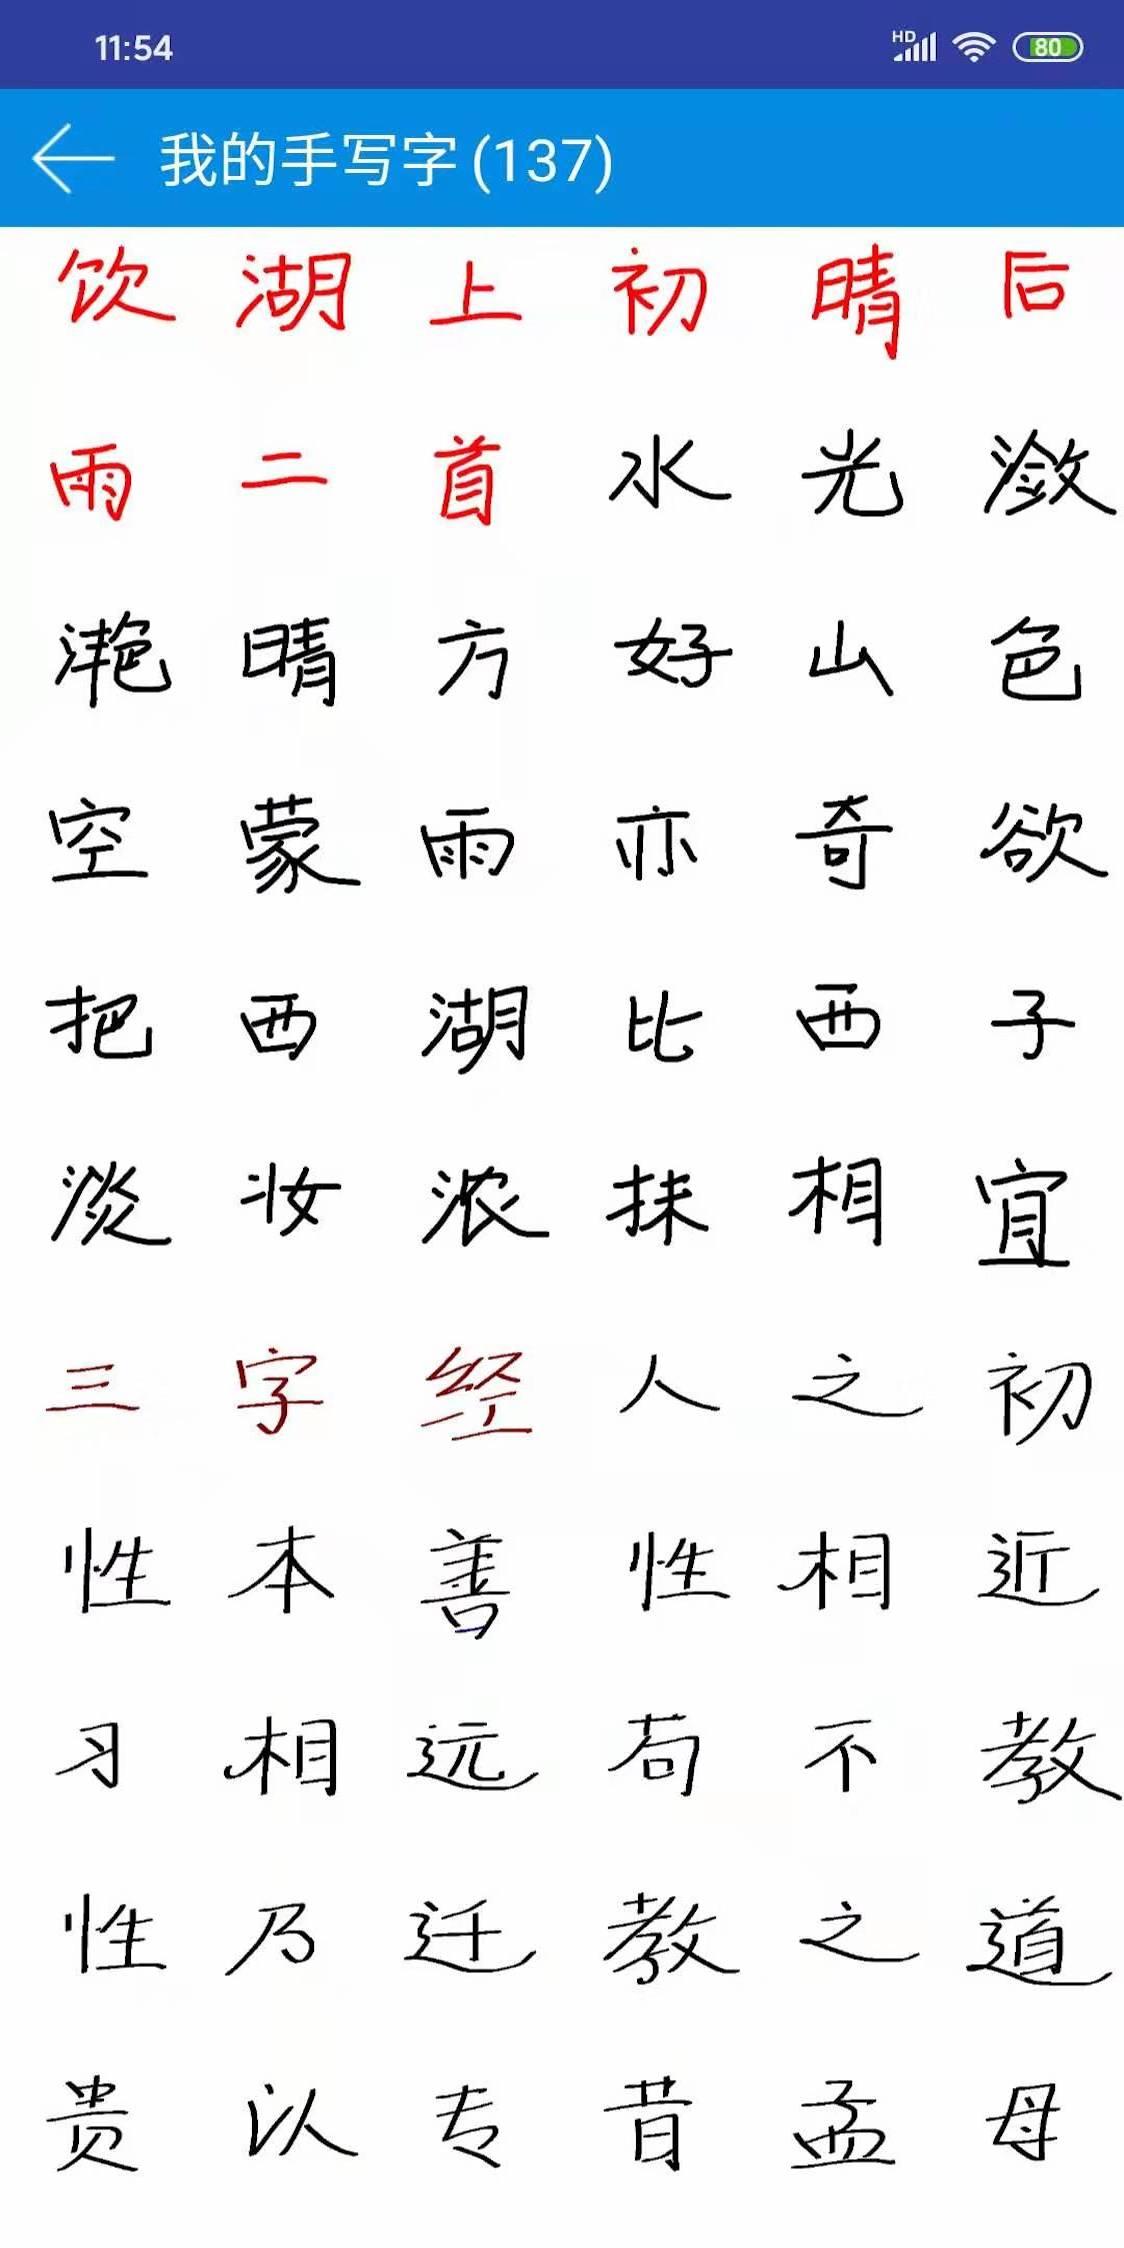 11:54 HD 80
我的手写字(137)
饮 湖 上 初 晴 后
雨 二 首 水 光 潋
滟 晴 方 好 山 色
空 蒙 雨 亦 奇 欲
把 西 湖 比 西 子
淡 妆 浓 抹 相 宜
三 字 经 人 之 初
性 本 善 性 相 近
习 相 远 苟 不 教
性 乃 迁 教 之 道
贵 以 专 昔 孟 母